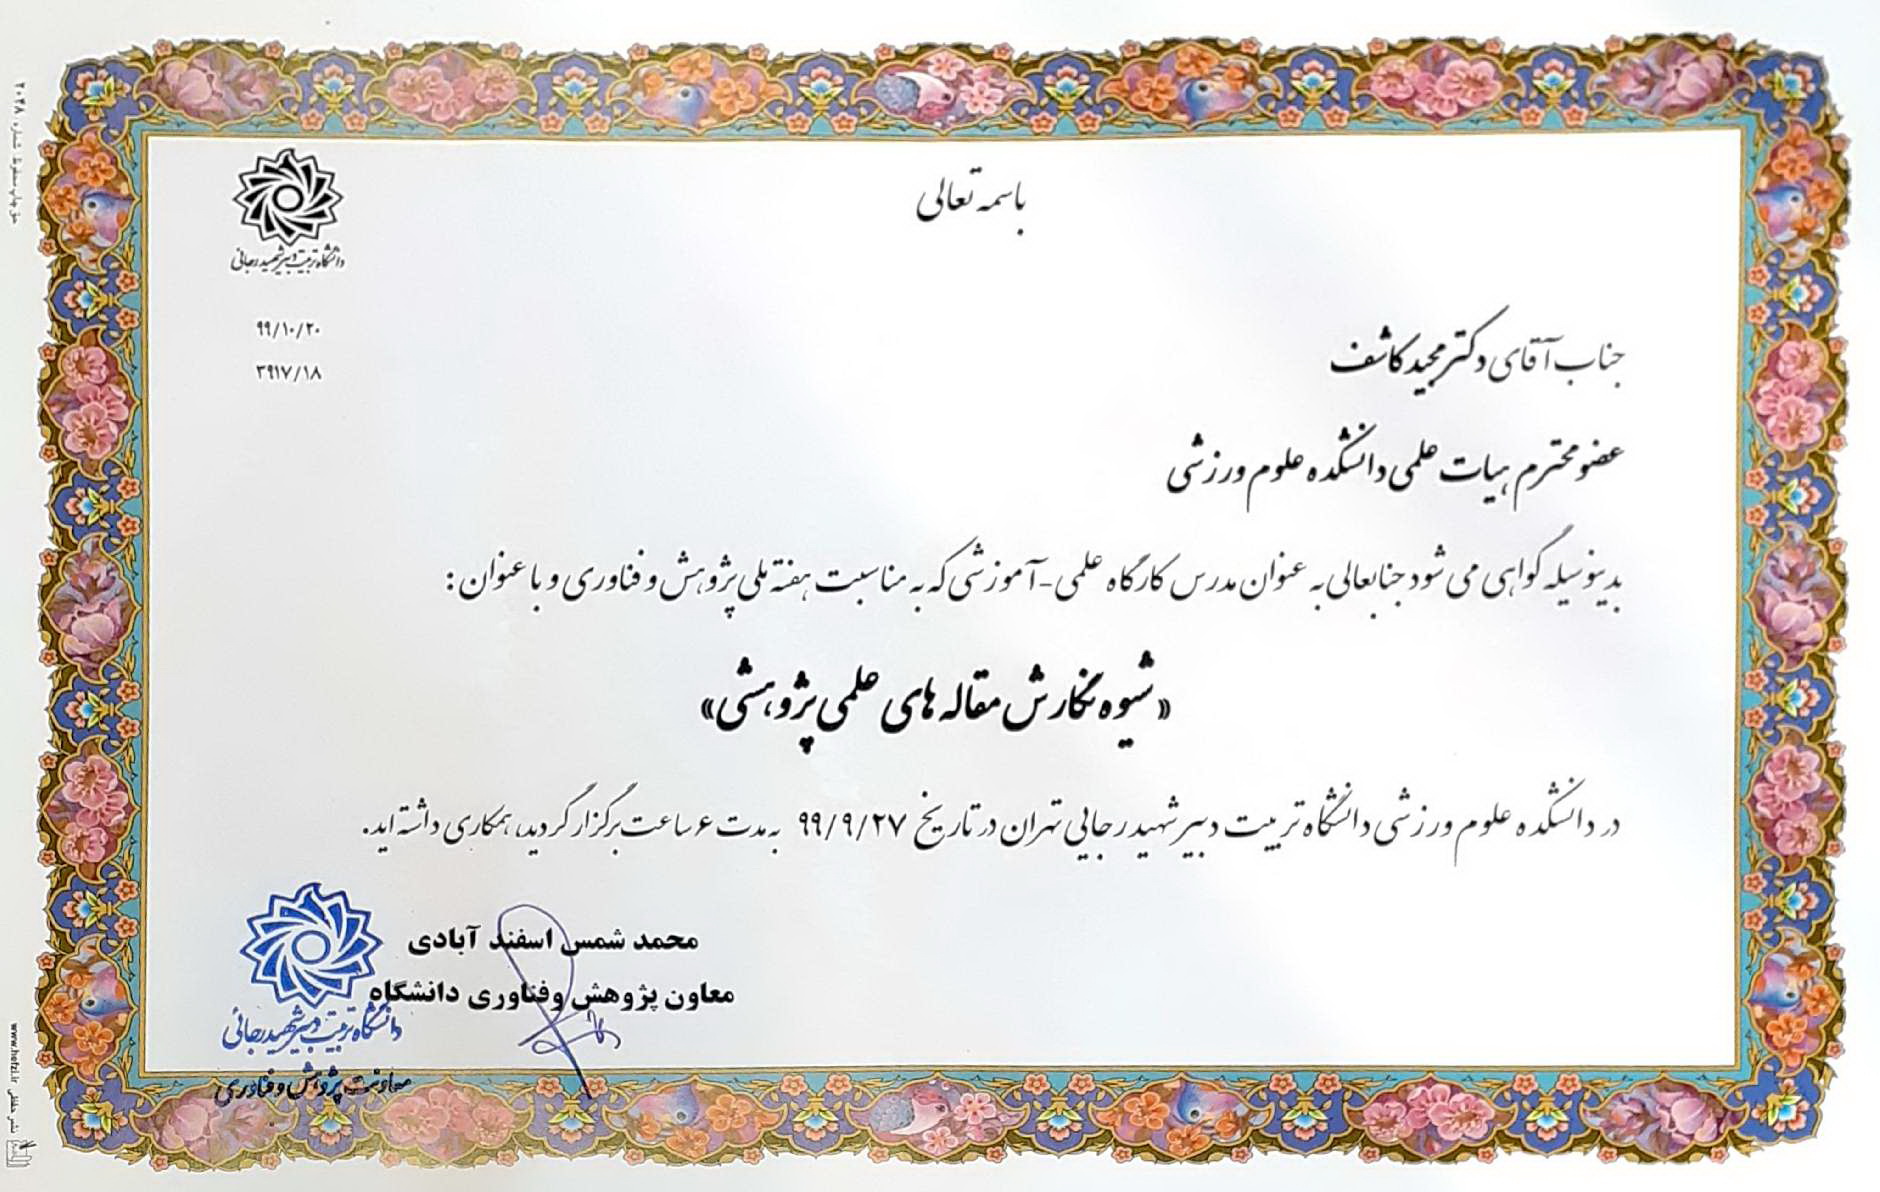 باسمه تعالی
دانشگاه تربیت دبیر شهید رجائی
۹۹/۱۰/۲۰
۳۹۱۷/۱۸
جناب آقای دکتر مجید کاشف
عضو محترم هیات علمی دانشکده علوم ورزشی
بدینوسیله گواهی می شود جنابعالی به عنوان مدرس کارگاه علمی-آموزشی که به مناسبت هفته ملی پژوهش و فناوری و با عنوان :
« شیوه نگارش مقاله های علمی پژوهشی»
در دانشکده علوم ورزشی دانشگاه تربیت دبیر شهید رجایی تهران در تاریخ ۹۹/۹/۲۷ به مدت ۶ ساعت برگزار گردید، همکاری داشته اید.
محمد شمس اسفند آبادی
معاون پژوهش وفناوری دانشگاه
دانشگاه تربیت دبیر شهید رجائی
معاونت پژوهش و فناوری
حق چاپ محفوظ شماره : ۲۰۴۸
www.hefzi.ir